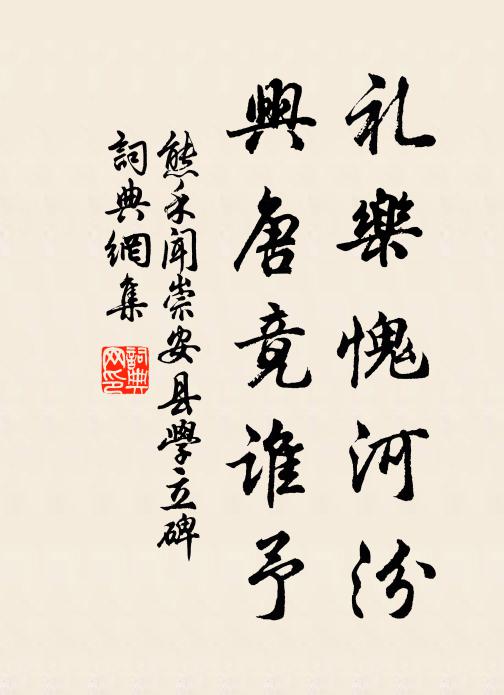 礼樂愧河汾
興唐竟誰予
熊禾聞崇安县學立碑
詞典網集
詞典网印